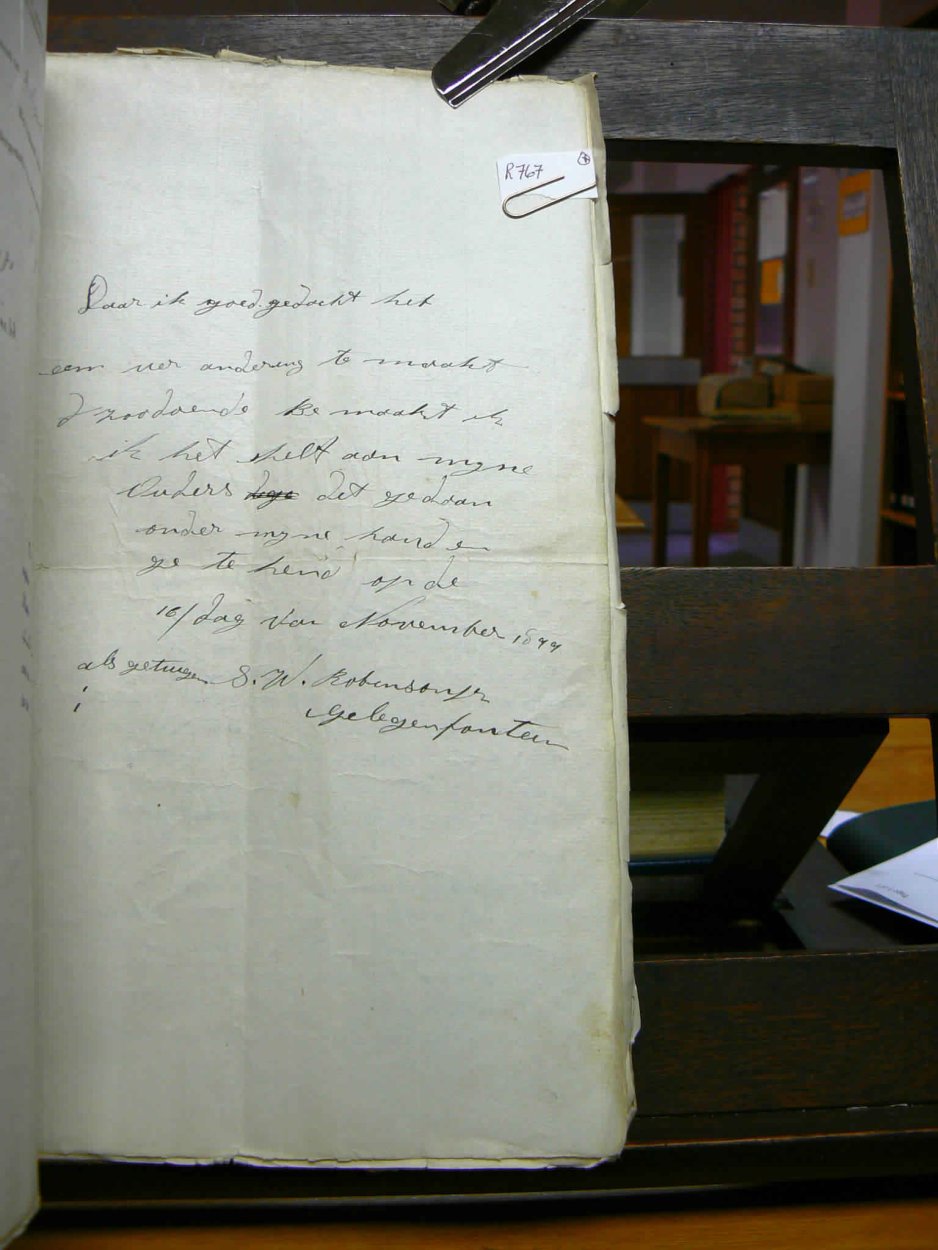 R767
Daar ik goed gedacht het
een ver andering te maakt
zoodoende Be maakt ik
ik het shelf aan myne
Ouders dit gedaan
onder myne hand en
ge te kend op de
16/dag van November 1899
als getuigen S. W. Robinson Jr
Gelegenfontein